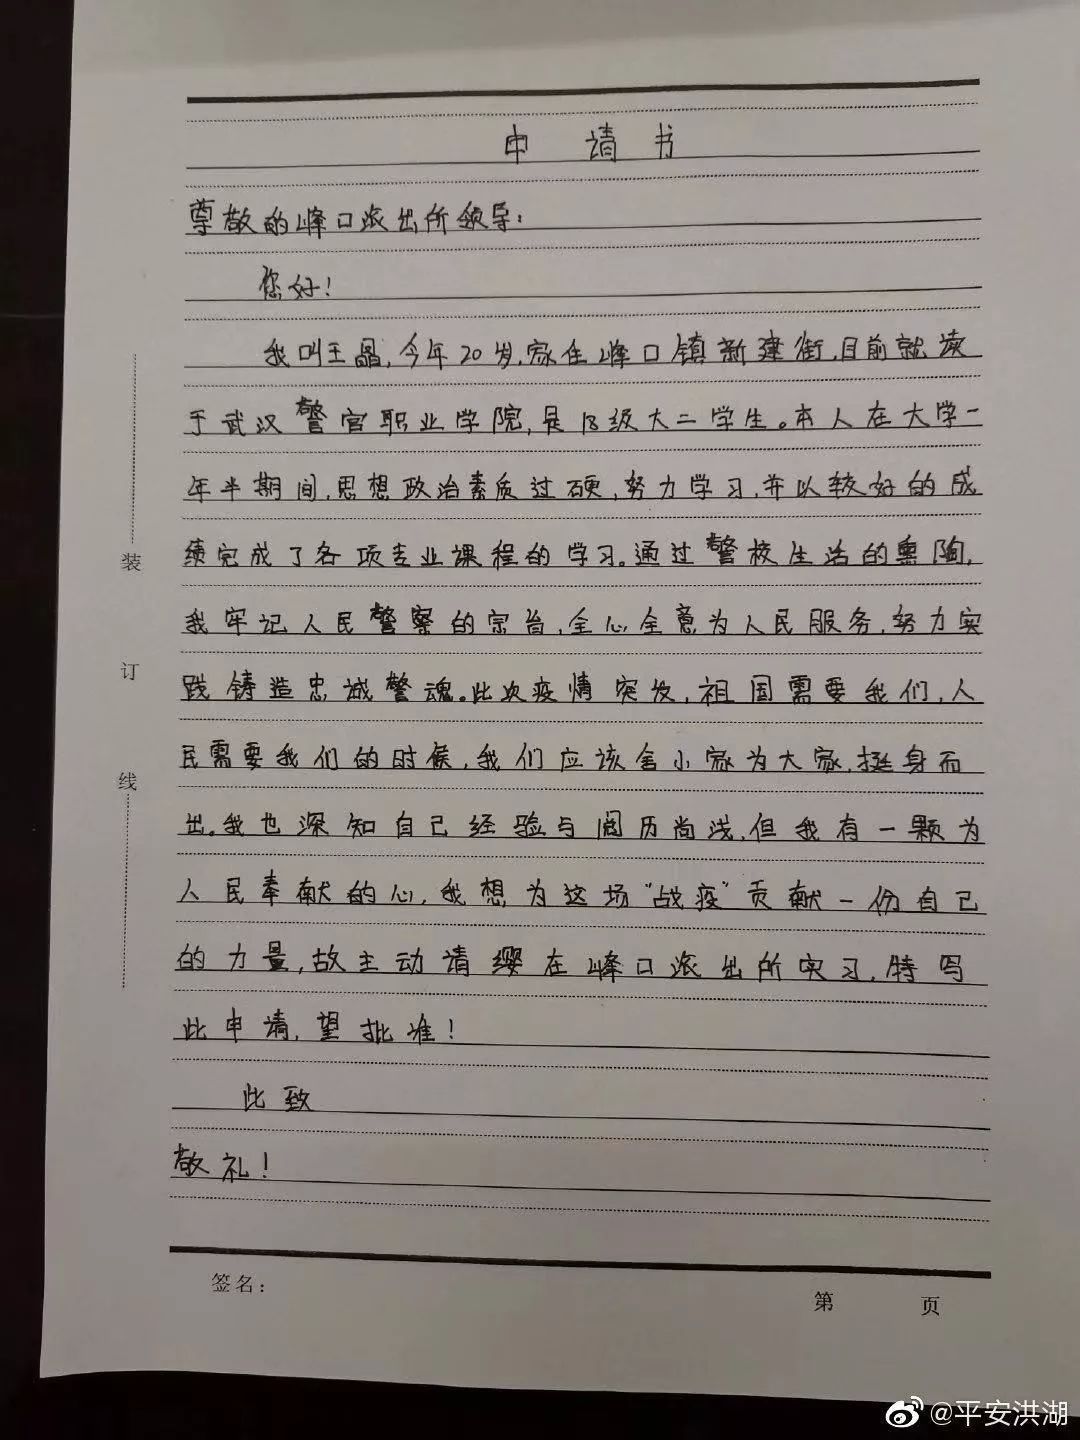 申 请 书
尊敬的峰口派出所领导:
您好!
我叫王晶,今年20岁,家住峰口镇新建街,目前就读
于武汉警官职业学院,是18级大二学生。本人在大学一
年半期间,思想政治素质过硬,努力学习,并以较好的成
绩完成了各项专业课程的学习。通过警校生活的熏陶,
我牢记人民警察的宗旨,全心全意为人民服务,努力实
践铸造忠诚警魂。此次疫情突发,祖国需要我们,人
民需要我们的时候,我们应该舍小家为大家,挺身而
出。我也深知自己经验与阅历尚浅,但我有一颗为
人民奉献的心,我想为这场“战疫”贡献一份自己
的力量,故主动请缨在峰口派出所实习,特写
此申请,望批准!
此致
敬礼!
装
订
线
签名:
第 页
@平安洪湖